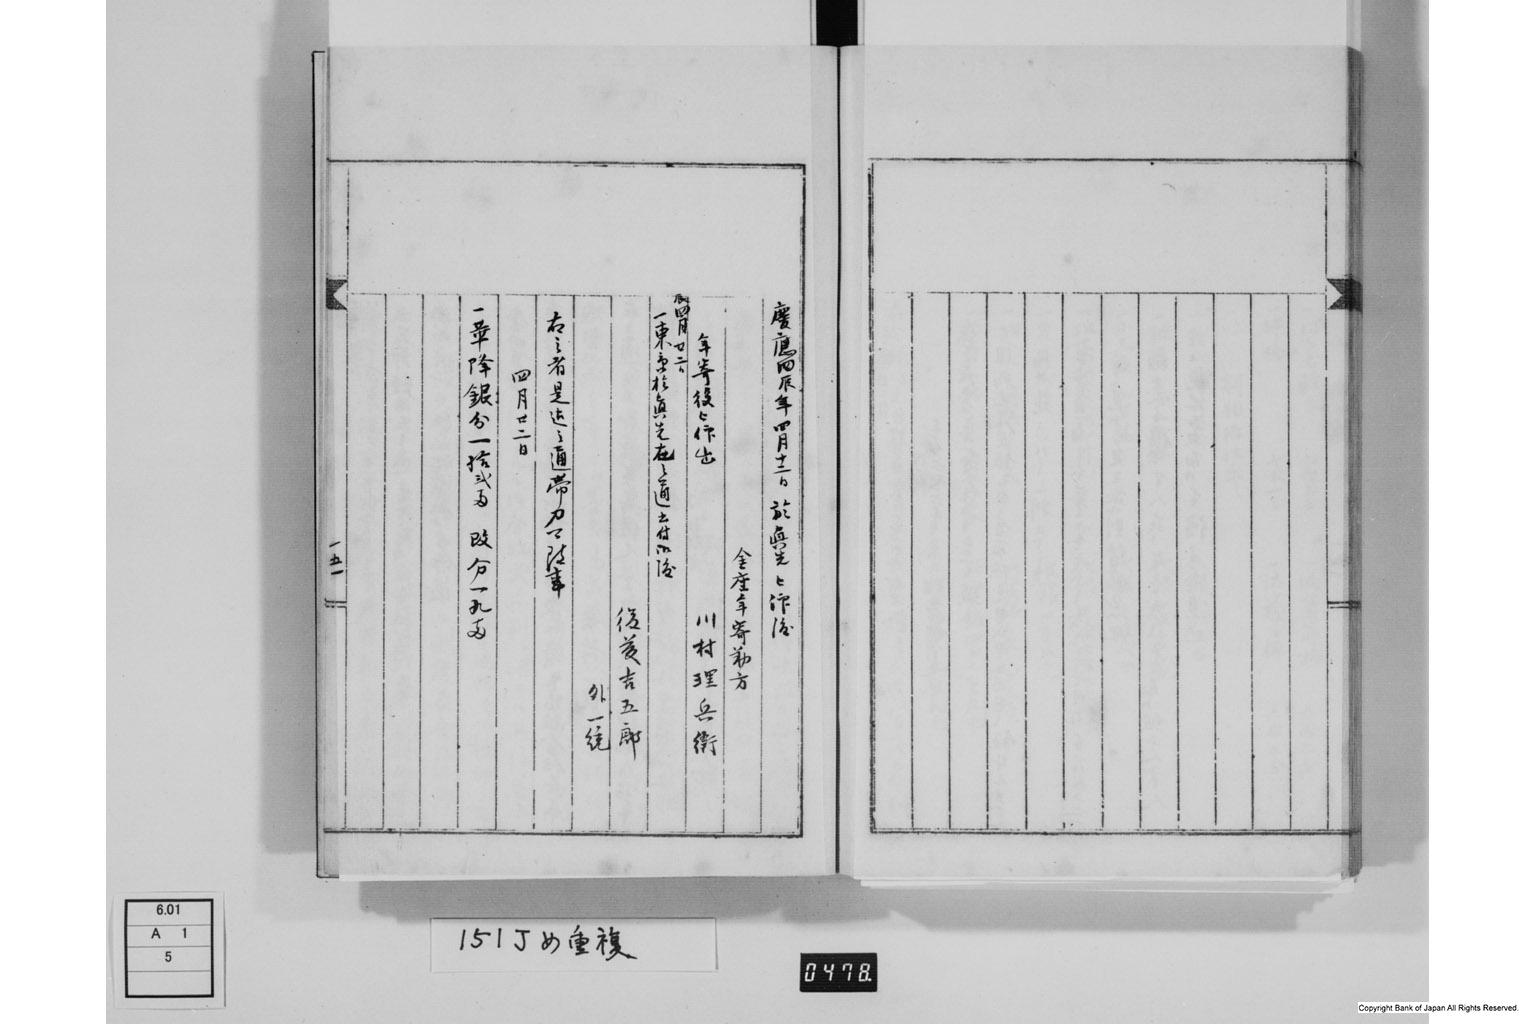 慶應四辰年四月十二日於眞先
金座年寄勤方
年寄役被仰出 川村理兵衛
辰四月廿二日
一東京於眞先在之通
後藤吉五郎
外一統
右之者是迄之通帯刀可致事
四月廿二日
一華降銀分一拾弐両 改分一九両
一五一
151丁め重複
6.01
A 1
5
0478.
Copyright Bank of Japan All Rights Reserved.